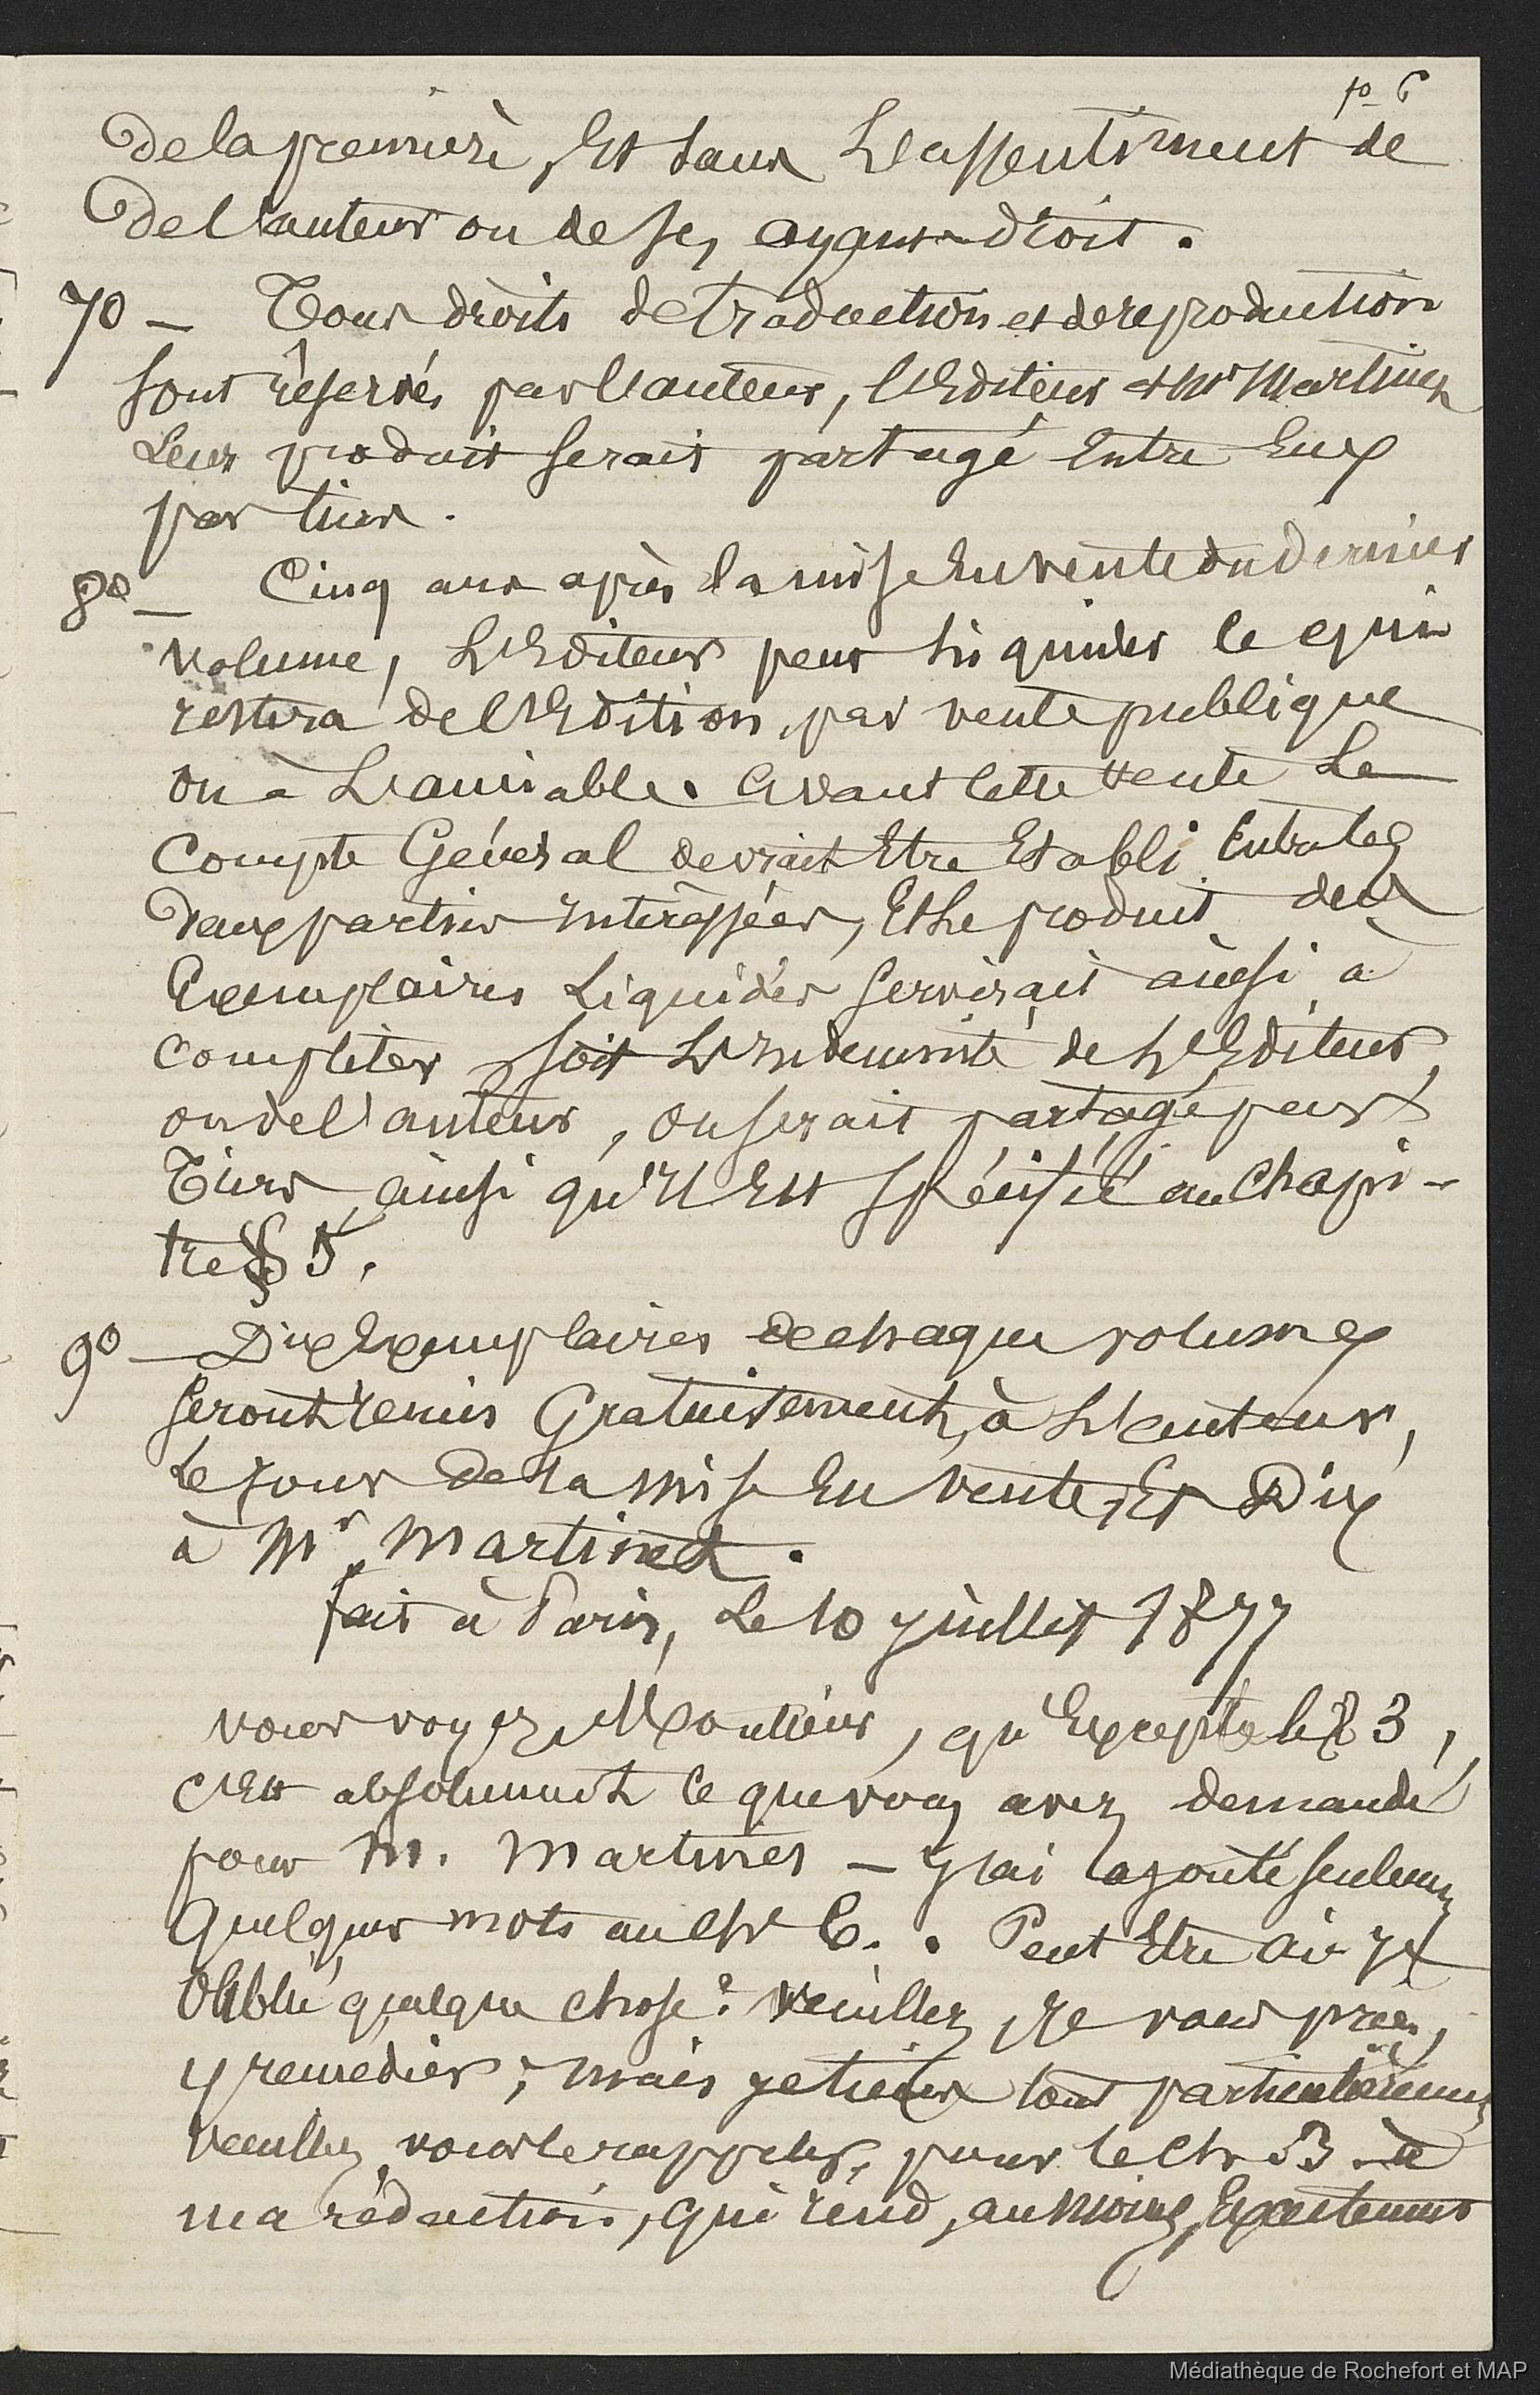 fo 6
de la première, Et sans L'assentiment de
de l'auteur ou de ses ayans-droit.
7o — Tous droits de traduction et de reproduction
sont réservés par l'auteur, l'Editeur et Mr Martinet
Leur produit serait partagé Entre Eux
par tiers.
8o — Cinq ans après la mise En vente du dernier
volume, L'Editeur peut liquider le qui
restera de l'Edition, par vente publique
ou à L'amiable. Avant cette vente Le
Compte Général devrait Etre Etabli Entre les
deux parties intéressées, Et Le produit des
Exemplaires Liquidés servirait ainsi à
compléter soit L'Indemnité de L'Editeur,
ou de l'auteur, ou serait partagé par
Tiers, ainsi qu'Il Est spécifié au chapi-
tre § 5.
9o — Dix Exemplaires de chaque volume
seront remis Gratuitement, à L'auteur,
Le jour de la mise En vente, Et Dix
à Mr. Martinet.
fait à Paris, Le 10 juillet 1877
vous voyez, Monsieur, qu'Excepté le § 3,
c'Est absolument ce que vous avez demandé
pour M. Martinet — j'ai ajouté seulement
Quelques mots au Ch 6.. Peut Etre ai-je
Oublié quelque chose? veuillez, je vous prie,
y remédier; mais je tiens tout particulièrement
veuillez vous le rappeler, pour le Ch 3. à
ma rédaction, qui rend, au moins, Exactement
Médiathèque de Rochefort et MAP